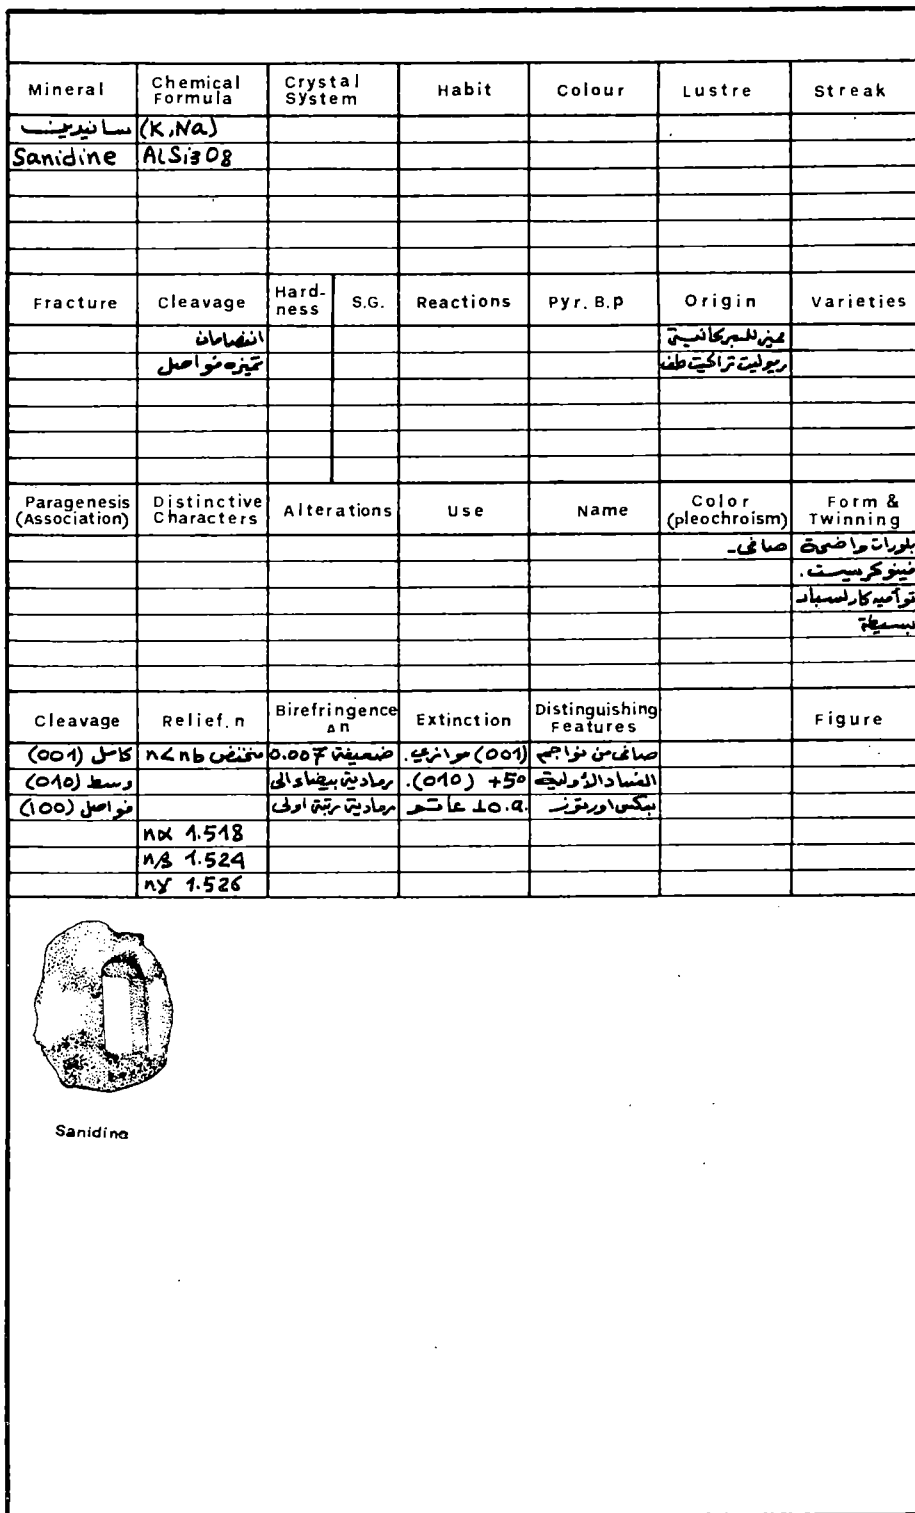 Mineral Chemical Formula Crystal System Habit Colour Lustre Streak
سانيدين (K,Na)
Sanidine AlSi3O8
Fracture Cleavage Hard-ness S.G. Reactions Pyr. B.p Origin Varieties
انفصامان مميز للبركانية
تميزه فواصل ريوليت تراكيت طف
Paragenesis (Association) Distinctive Characters Alterations Use Name Color (pleochroism) Form & Twinning
صافي- بلورات واضحة
فينوكريست.
توأمية كارلسباد
بسيطة
Cleavage Relief. n Birefringence Δn Extinction Distinguishing Features Figure
كامل (001) منخفض n<nb ضعيفة 0.007 (001) موازي. صافي من نواجم
وسط (010) رمادية بيضاء الى (010) +5° الفساد الأولية
فواصل (100) رمادية رتبة اولى بعكس اورتوز
nα 1.518
nβ 1.524
nγ 1.526
Sanidine